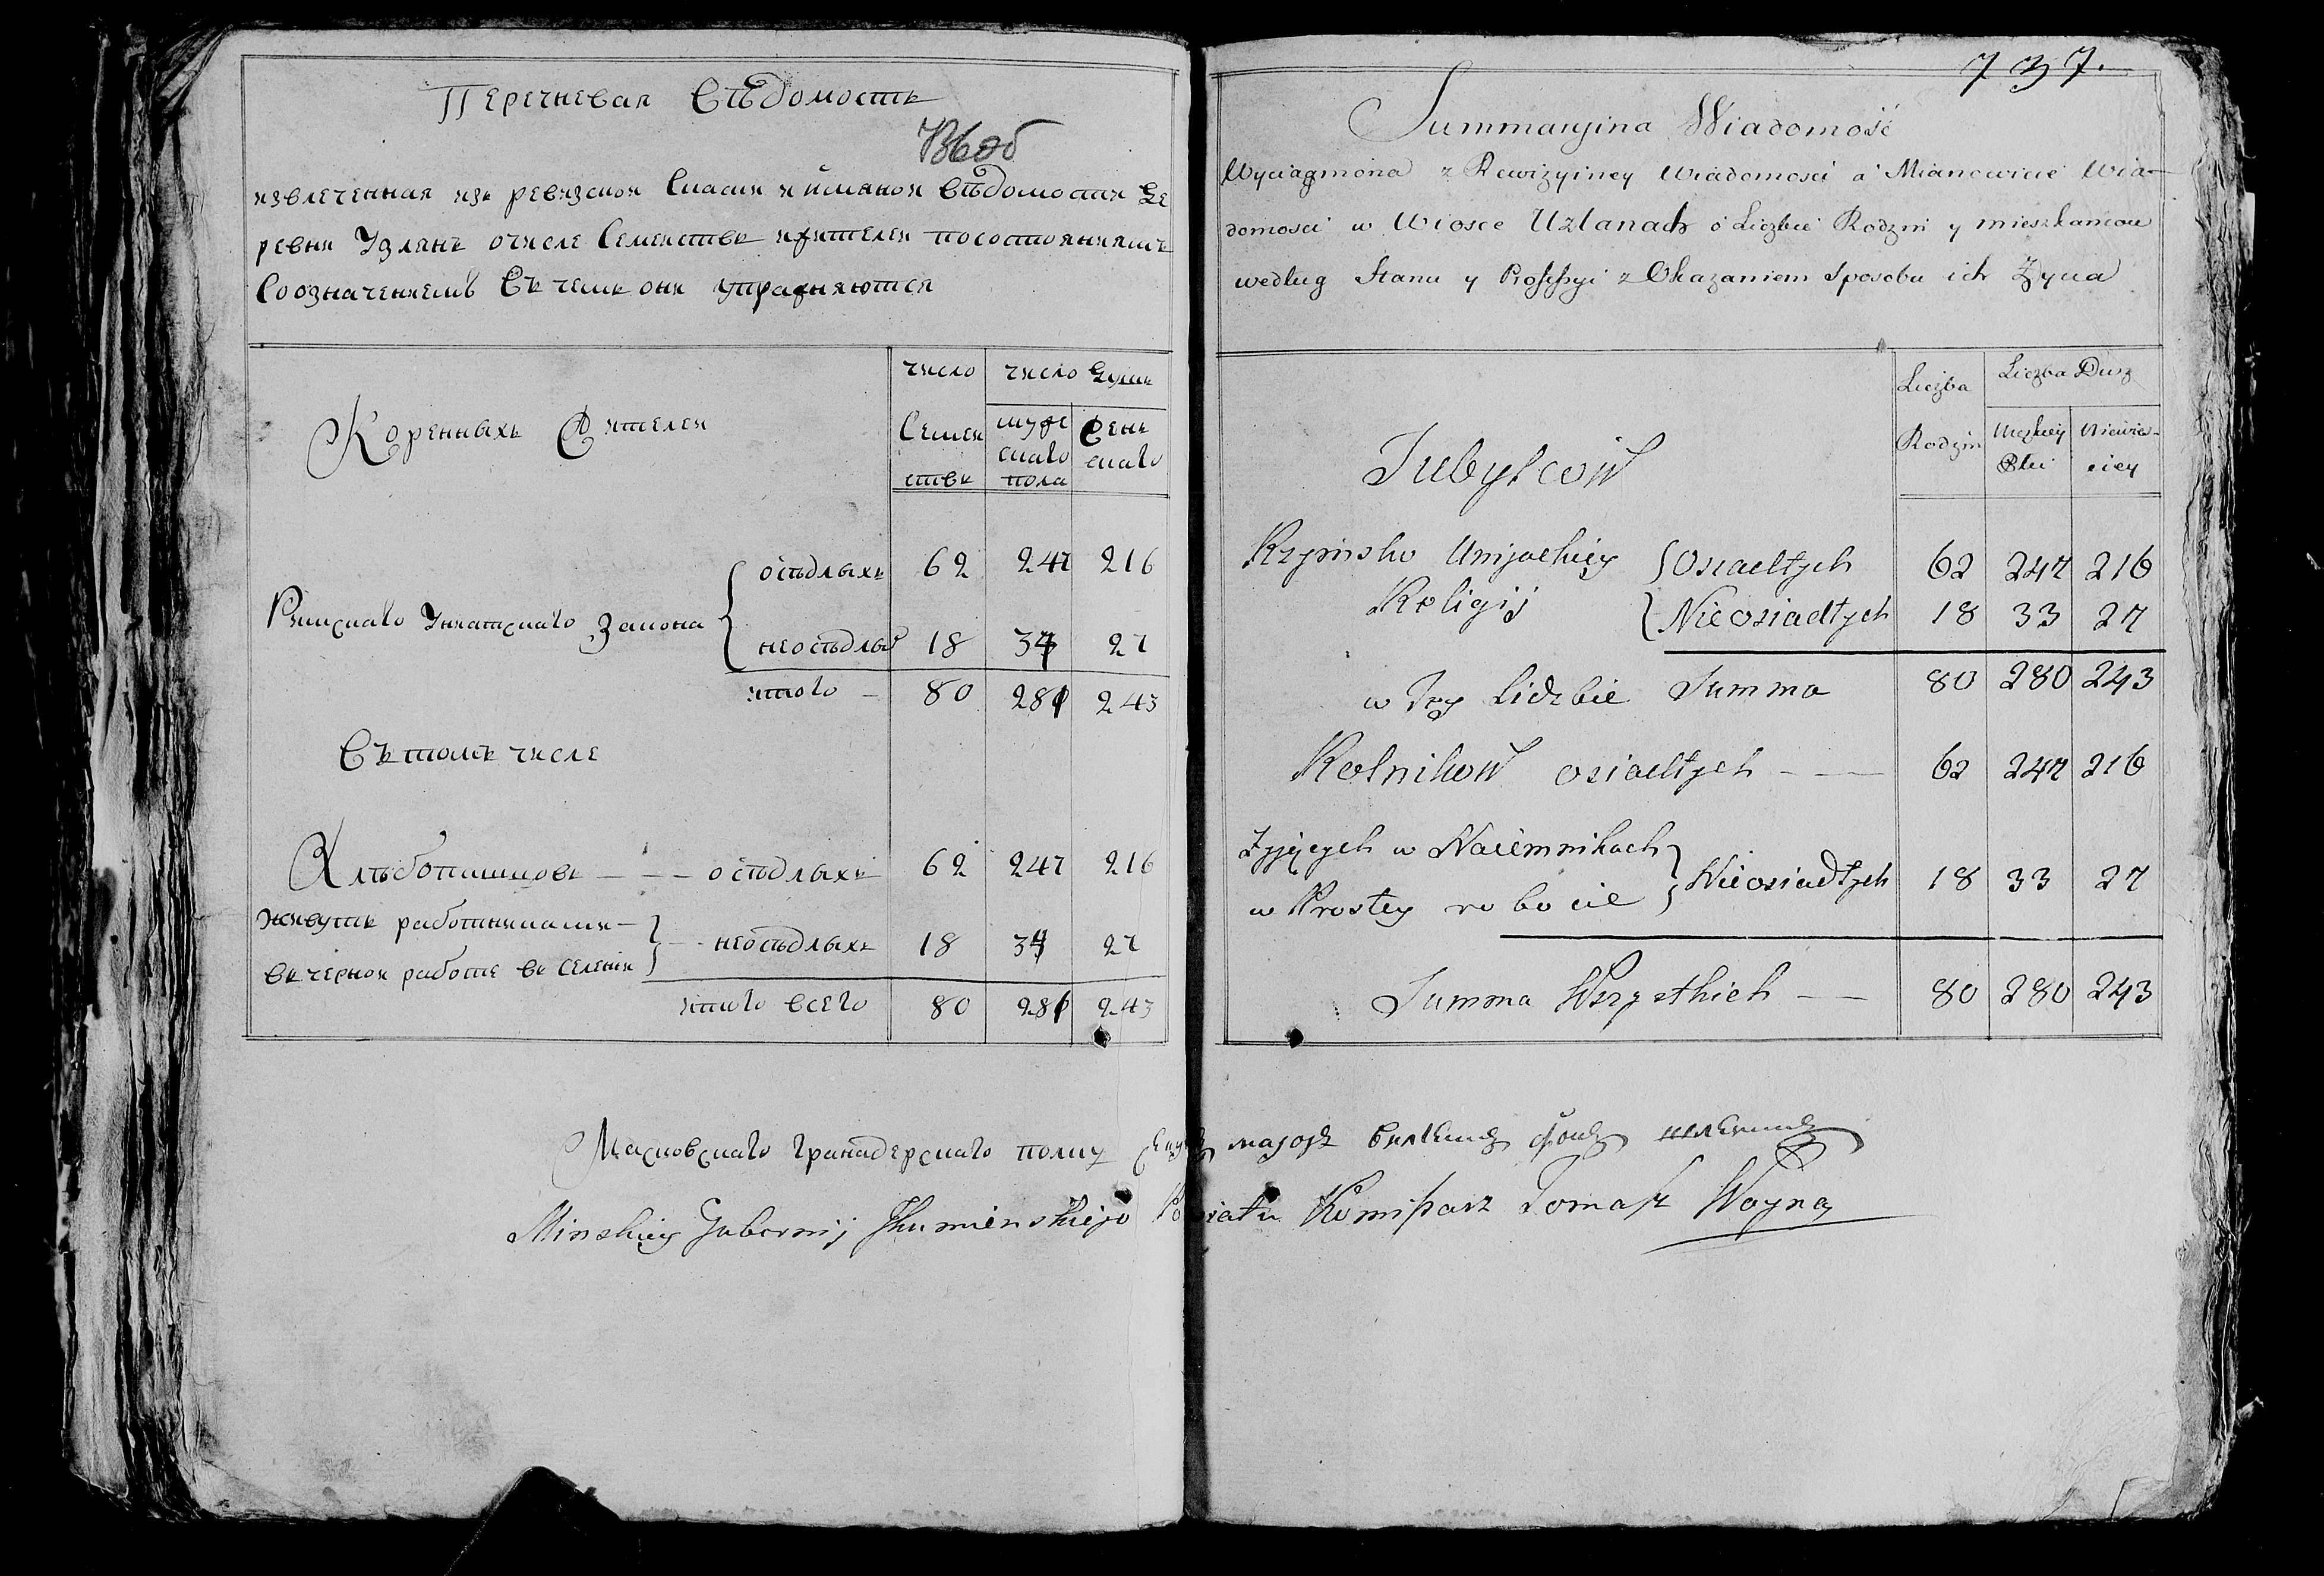 Перечневая Вѣдомость
извлеченная изъ ревизской Сказки и имяной вѣдомости де
ревни Узлянъ очисле Семействъ ижителей посостояниямъ
Соозначениемъ Въ чемъ они упражняются
Коренныхъ Жителей
число
Семей
ствъ
число душъ
муже
скаго
пола
Жень
скаго
Римскаго Униатскаго Закона
осѣдлыхъ 62 247 216
неосѣдлых 18 34 27
итого 80 281 243
Въ томъ числе
Хлѣбопашцовъ осѣдлыхъ 62 247 216
живутъ работниками
въ черной работе въ селении
неосѣдлыхъ 18 34 27
итого всего 80 281 243
737.
Summaryina Wiadomość
Wyciągniona z Rewizyiney Wiadomosci a Mianowicie Wia-
domosci w Wiosce Uzlanach o Liczbie Rodzin y mieszkancow
według Stanu y Professyi z Okazaniem Sposobu ich Zycia
Tubylcow
Liczba
Rodzin
Liczba Dusz
Męzkiey
Płci
Niewies-
ciey
Rzymsko Unijackiey
Religij
Osiadłych 62 247 216
Nieosiadłych 18 33 27
w Tey Liczbie Summa 80 280 243
Rolnikow osiadłych 62 247 216
Zyjących w Naiemnikach
w Prostey robocie
Nieosiadłych 18 33 27
Summa Wszystkich 80 280 243
Московскаго гранадерскаго полку маіоръ фонъ
Minskiey Gubernij Jhumienskiego Powiatu Komissarz Tomasz Woyna